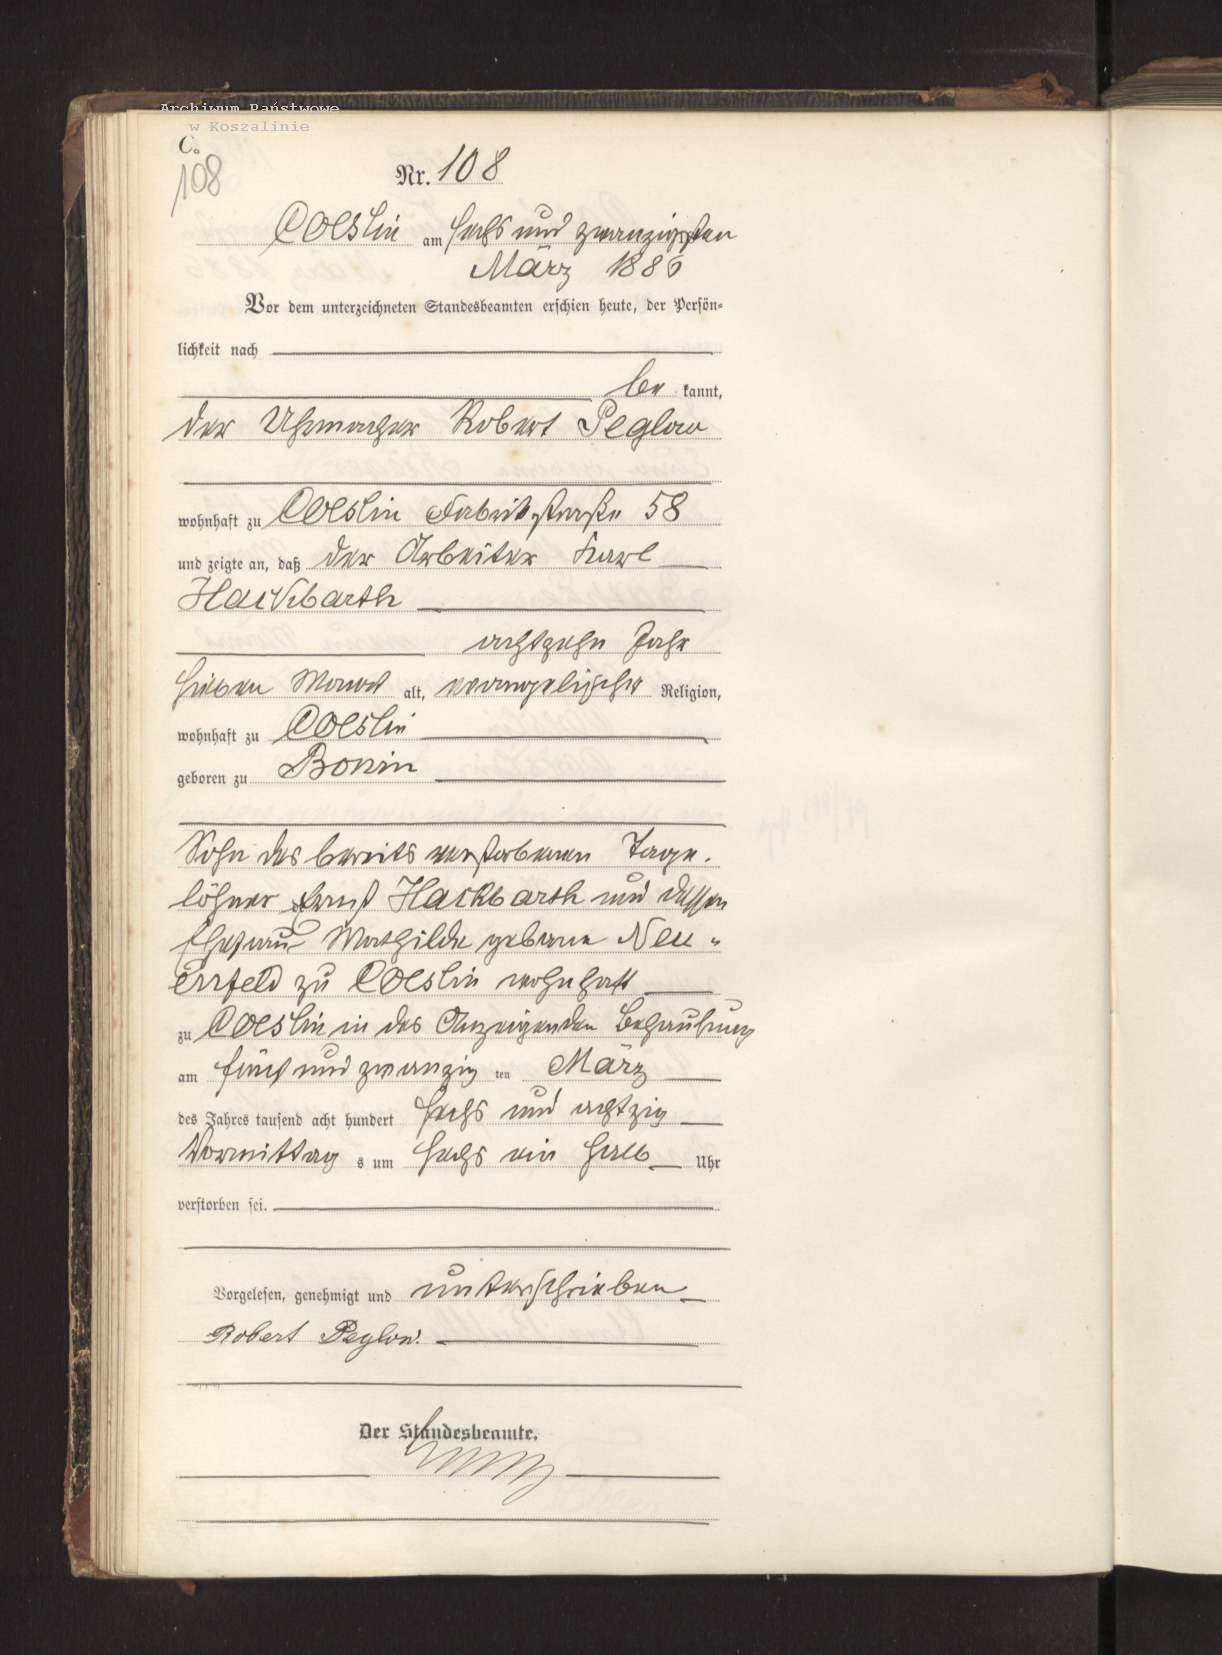 Archiwum Państwowe
w Koszalinie
C.
108
Nr. 108
Coeslin am sechs und zwanzigsten
März 1886
Vor dem unterzeichneten Standesbeamten erschien heute, der Persön-
lichkeit nach
be kannt,
der Uhrmacher Robert Peglow
wohnhaft zu Coeslin Fabrikstraße 58
und zeigte an, daß der Arbeiter Karl
Hackbarth
achtzehn Jahr
sieben Monat alt, evangelischer Religion,
wohnhaft zu Coeslin
geboren zu Bonin
Sohn des bereits verstorbenen Tage-
löhner Ernst Hackbarth und dessen
Ehefrau Mathilde geborne Neu-
enfeld zu Coeslin wohnhaft
zu Coeslin in des Anzeigenden Behausung
am fünf und zwanzig ten März
des Jahres tausend acht hundert sechs und achtzig
Vormittag s um sechs ein halb Uhr
verstorben sei.
Vorgelesen, genehmigt und unterschrieben
Robert Peglow.
Der Standesbeamte.